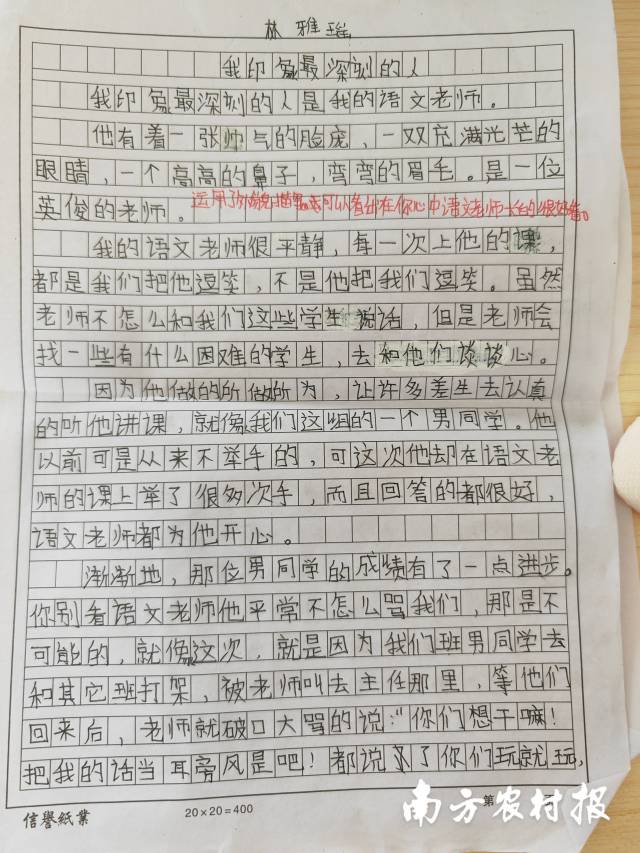 林雅瑶
我印象最深刻的人
我印象最深刻的人是我的语文老师。
他有着一张帅气的脸庞,一双充满光芒的
眼睛,一个高高的鼻子,弯弯的眉毛。是一位
英俊的老师。
运用了外貌描写,可以看出在你心中语文老师长的很好看。
我的语文老师很平静,每一次上他的课,
都是我们把他逗笑,不是他把我们逗笑。虽然
老师不怎么和我们这些学生说话,但是老师会
找一些有什么困难的学生,去和他们谈谈心。
因为他做的所做所为,让许多差生去认真
的听他讲课,就像我们这组的一个男同学。他
以前可是从来不举手的,可这次他却在语文老
师的课上举了很多次手,而且回答的都很好,
语文老师都为他开心。
渐渐地,那位男同学的成绩有了一点进步。
你别看语文老师他平常不怎么骂我们,那是不
可能的,就像这次,就是因为我们班男同学去
和其它班打架,被老师叫去主任那里,等他们
回来后,老师就破口大骂的说:“你们想干嘛!
把我的话当耳旁风是吧!都说了你们玩就玩,
信誉紙業
20×20=400
第
南方农村报